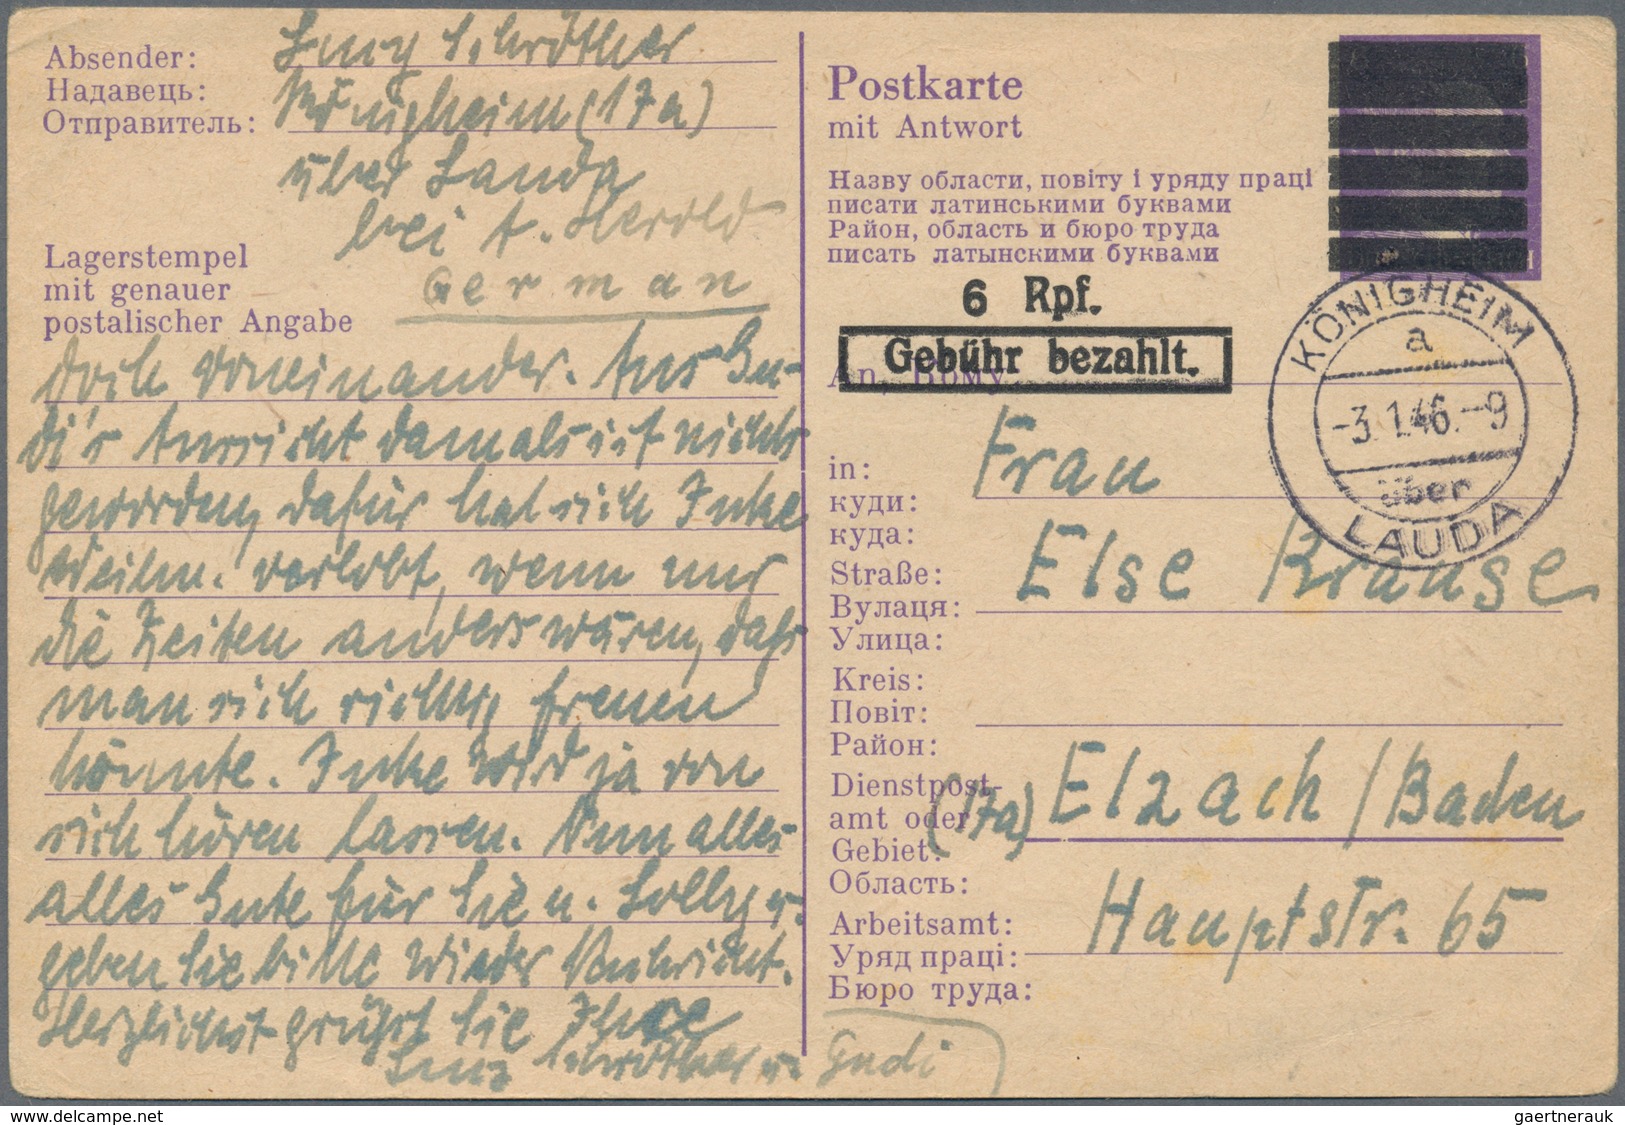 Absender:
Надавець:
Отправитель:
Schröther
Königheim (17a)
über Lauda
bei A. Herold
German
Lagerstempel
mit genauer
postalischer Angabe
doch voneinander. Aus Gu-
di's Aussicht damals ist nichts
geworden, dafür hat sich Inke
Weihn. verlobt, wenn nur
die Zeiten anders wären, daß
man sich richtig freuen
könnte. Inke wird ja von
sich hören lassen. Nun alles
alles Gute für Sie u. Lolly u.
geben Sie bitte wieder Nachricht.
Herzlichst grüßt Sie Ihre
Schröther u. Gudi
Postkarte
mit Antwort
Назву области, повіту і уряду праці
писати латинськими буквами
Район, область и бюро труда
писать латынскими буквами
6 Rpf.
Gebühr bezahlt.
An, Кому
KÖNIGHEIM
a
-3.1.46.-9
über
LAUDA
in:
куди:
куда:
Frau
Straße:
Вулаця:
Улица:
Else Krause
Kreis:
Повіт:
Район:
Dienstpost-
amt oder
Gebiet:
Область:
(17a) Elzach / Baden
Arbeitsamt:
Уряд праці:
Бюро труда:
Hauptstr. 65
www.delcampe.net
gaertnerauk